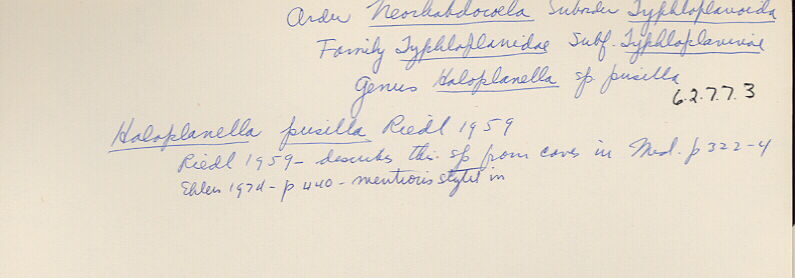 Order Neorhabdocoela Suborder Typhloplanoida
Family Typhloplanidae Subf. Typhloplaninae
Genus Haloplanella sp pusilla
6.2.7.7.3
Haloplanella pusilla Riedl 1959
Riedl 1959 - describes this sp from caves in Med. p 322-4
Ehlers 1974 - p 440 - mentions stylet in